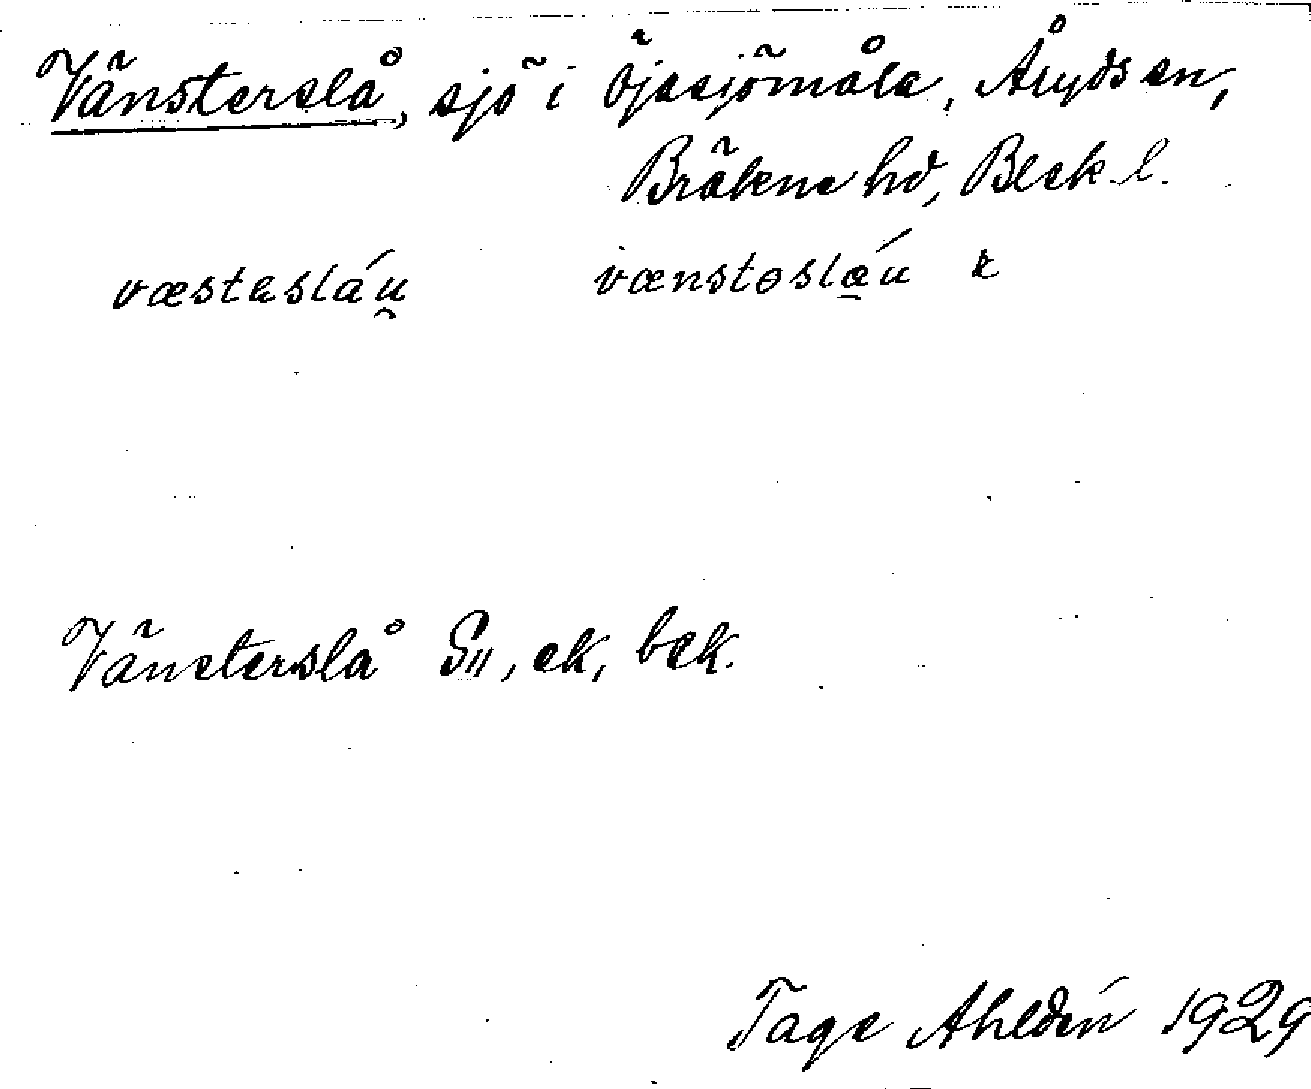 Vänsterslå, sjö i Öjasjömåla, Åryds sn,
Bräkne hd, Blek. l.
væstasláu̯ vænstəslá̱u r
Vänsterslå S11, ek, bek.
Tage Ahldén 1929